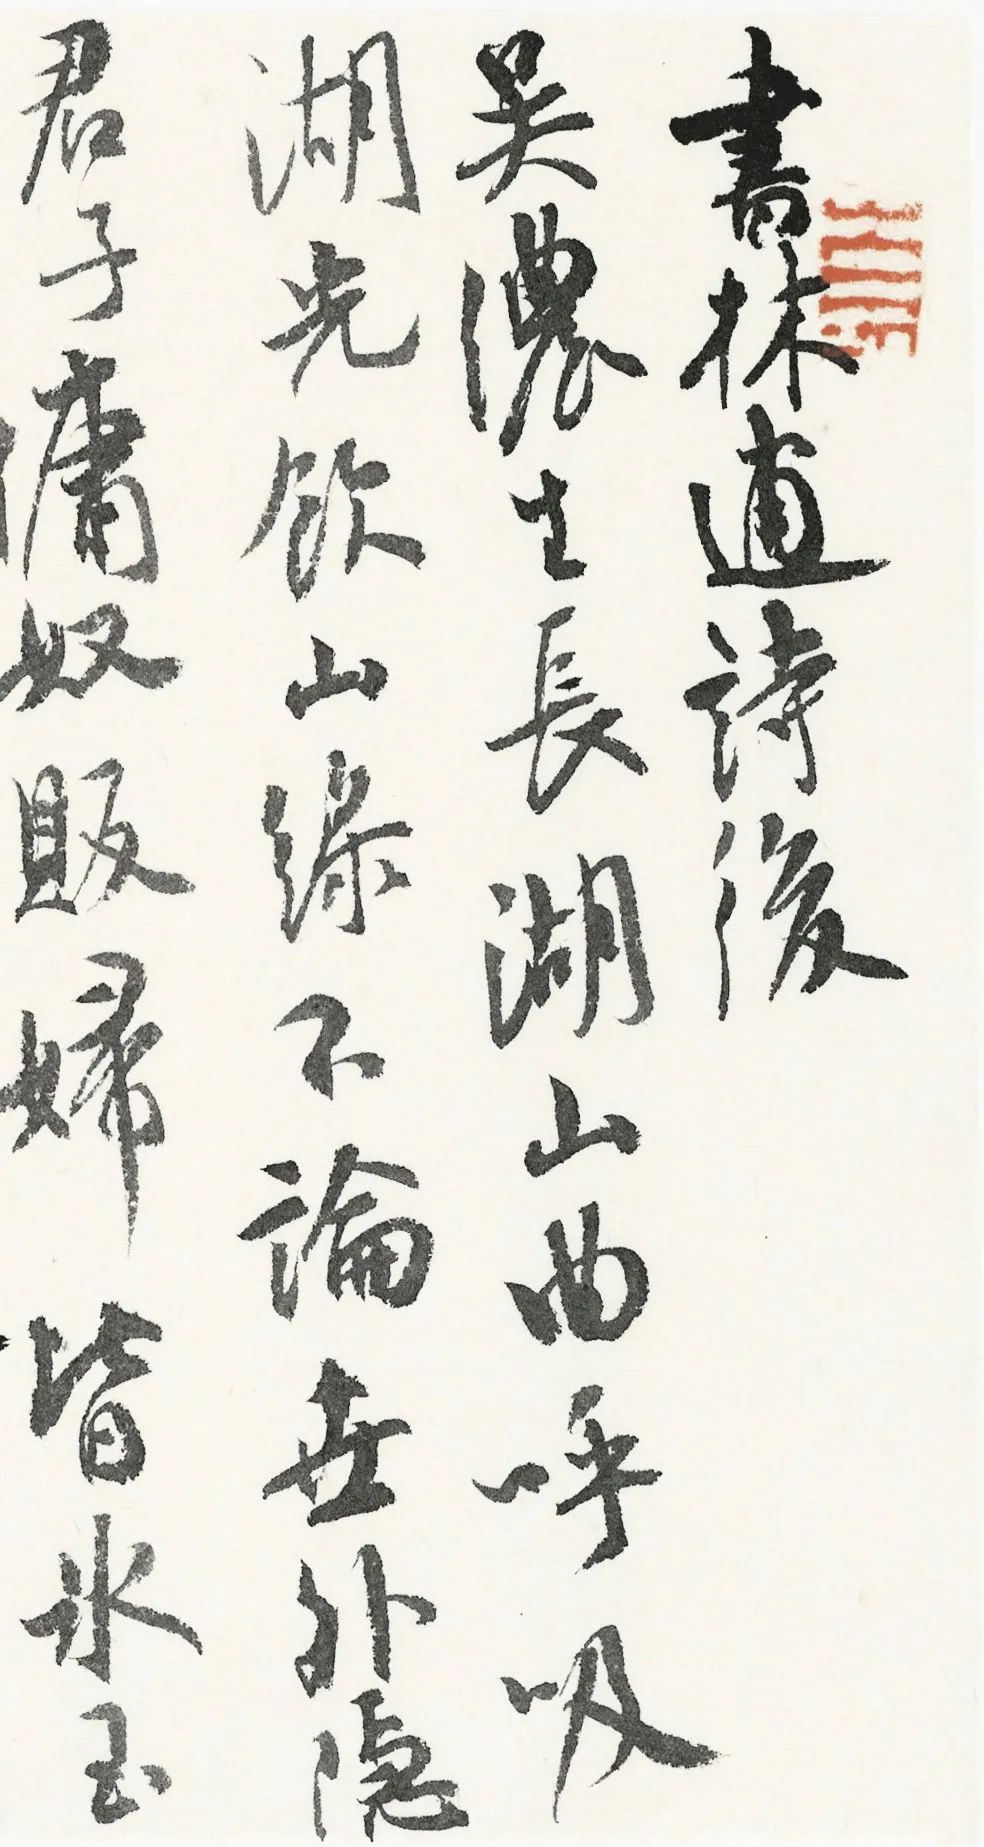 書林逋詩後
吳濃生長湖山曲呼吸
湖光飲山綠不論世外隱
君子傭奴販婦皆冰玉